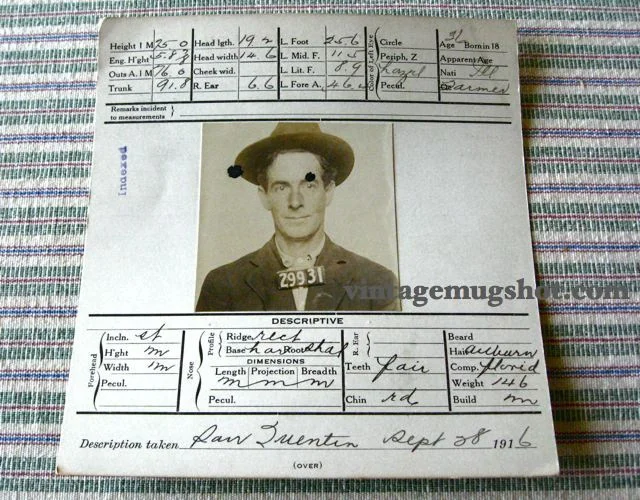 Height 1 M 75.0 Head lgth. 19.2 L. Foot 25.6 Circle Age 31 Born in 18
Eng. H'ght Head width 14.6 L. Mid. F. 11.5 Periph, Z Apparent Age
Outs A. 1 M 76.0 Cheek wid. L. Lit F. 8.9 hazel Nati Ill
Trunk 91.8 R. Ear 6.6 L. Fore A. 46 Pecul. Farmer
Color of Left Eye
Remarks incident
to measurements
Indexed
29931
vintagemugshot.com
DESCRIPTIVE
Forehead
Incln. st
H'ght m
Width m
Pecul.
Nose
Profile
Ridge rect
Base Root
DIMENSIONS
Length Projection Breadth
m m m
Pecul.
R. Ear
Teeth fair
Chin rd
Beard
Hair auburn
Comp. florid
Weight 146
Build m
Description taken San Quentin Sept 28 1916
(OVER)